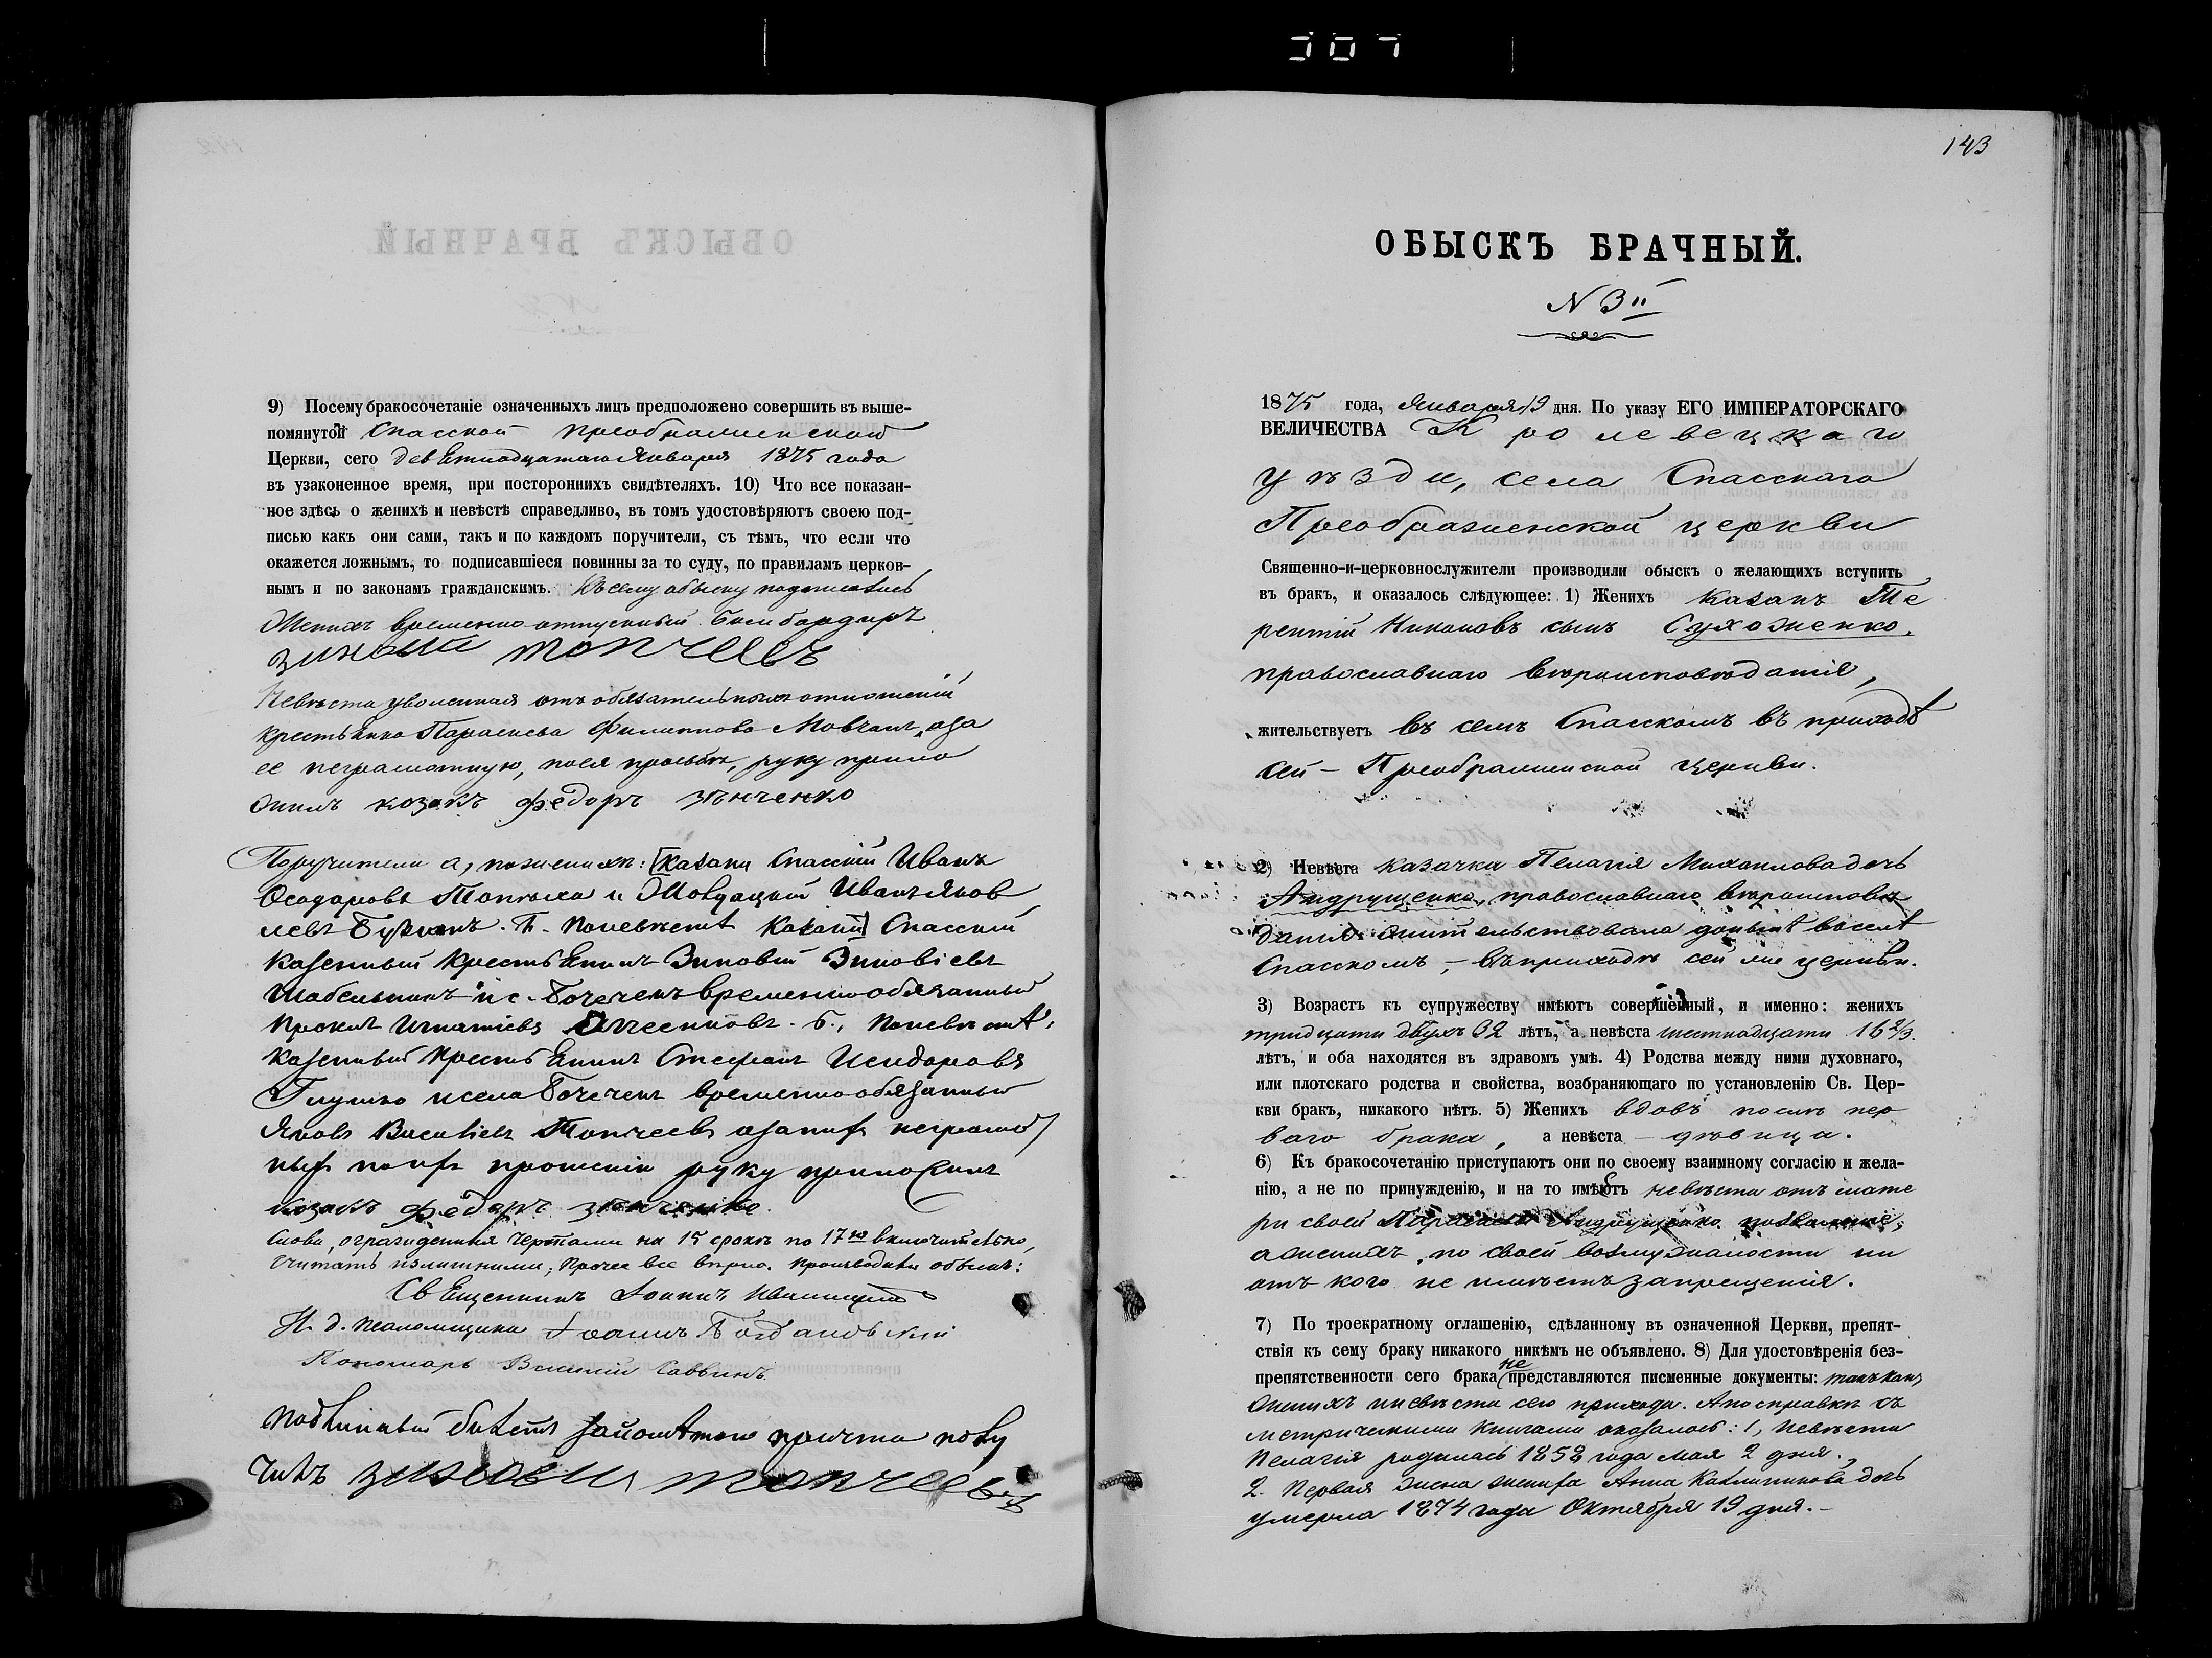 9) Посему бракосочетаніе означенныхъ лицъ предположено совершить въ выше-
помянутой Спасской Преображенской
Церкви, сего девѣтнадцатаго Января 1875 года
въ узаконенное время, при постороннихъ свидѣтеляхъ. 10) Что все показан-
ное здѣсь о женихѣ и невѣстѣ справедливо, въ томъ удостовѣряютъ своею под-
писью какъ они сами, такъ и по каждомъ поручители, съ тѣмъ, что если что
окажется ложнымъ, то подписавшіеся повинны за то суду, по правиламъ церков-
нымъ и по законамъ гражданскимъ. Къ сему обыску подписались
Женихъ временно отпускный бомбардиръ
зиновий топчеевъ
Невѣста уволенная отъ обязательныхъ отношеній
крестьянка Параскева Филиппова Мовчанъ, а за
ее неграмотную, по ея просьбѣ, руку прило
жилъ козакъ федоръ зѣнченко
Поручители а, по женихѣ: [казаки Спасскій Иванъ
Ѳеодоровъ и Иванъ Яков
левъ По невѣстѣ Казаки] Спасскій
казенный крестьянинъ Зиновій Зиновіевъ
Шабельникъ и с. Бочечекъ временнообязанный
Прокопъ Игнатіевъ б., По невѣстѣ,
казенный крестьянинъ Стефанъ Исидоровъ
Глушко и села Бочечекъ временнообязанный
Яковъ Василіевъ Топчеевъ а за них неграмот
ных по их прошенію руку приложилъ
козакъ федоръ зѣнченко
Слова, огражденныя чертами на 15 строкѣ по 17ю включительно,
считать излишними; прочее все вѣрно. Производили обыскъ:
Священникъ Іоаннъ
И. д. псаломщика Іоаннъ Богдановскій
Пономарь Василій Саввинъ.
Подлинный билетъ причта полу
чилъ зиновий топчеевъ
143
ОБЫСКЪ БРАЧНЫЙ.
N 3й
1875 года, Января 19 дня. По указу ЕГО ИМПЕРАТОРСКАГО
ВЕЛИЧЕСТВА Кролевецкаго
уѣзда, села Спасскаго
Преображенской церкви
Священно-и-церковнослужители производили обыскъ о желающихъ вступить
въ бракъ, и оказалось слѣдующее: 1) Женихъ казакъ Те
рентій Никоновъ сынъ Сухоженко,
православнаго вѣроисповѣданія,
жительствуетъ въ селѣ Спасскомъ въ приходѣ
сей – Преображенской церкви.
2) Невѣста казачка Пелагія Михаилова дочь
Андрущенко, православнаго вѣроисповѣ
данія жительствовала донынѣ въ селѣ
Спасскомъ, – въ приходѣ сей же церкви.
3) Возрастъ къ супружеству имѣютъ совершенный, и именно: женихъ
тридцати двухъ 32 лѣтъ, а невѣста шестнадцати 16 2/3.
лѣтъ, и оба находятся въ здравомъ умѣ. 4) Родства между ними духовнаго,
или плотскаго родства и свойства, возбраняющаго по установленію Св. Цер-
кви бракъ, никакого нѣтъ. 5) Женихъ вдовъ послѣ пер
ваго брака, а невѣста – дѣвица.
6) Къ бракосочетанію приступаютъ они по своему взаимному согласію и жела-
нію, а не по принужденію, и на то имѣютъ невѣста отъ мате
ри своей Параскевы Андрущенко позволеніе,
а женихъ по своей возмужалости ни
отъ кого не имѣетъ запрещенія.
7) По троекратному оглашенію, сдѣланному въ означенной Церкви, препят-
ствія къ сему браку никакого никѣмъ не объявлено. 8) Для удостовѣренія без-
препятственности сего брака не представляются писменные документы: такъ какъ
женихъ и невѣста сего прихода. А по справкѣ съ
метрическими книгами оказалось: 1, Невѣста
Пелагія родилась 1858 года Мая 2 дня.
2. Первая жена жениха Анна дочь
умерла 1874 года Октября 19 дня. –